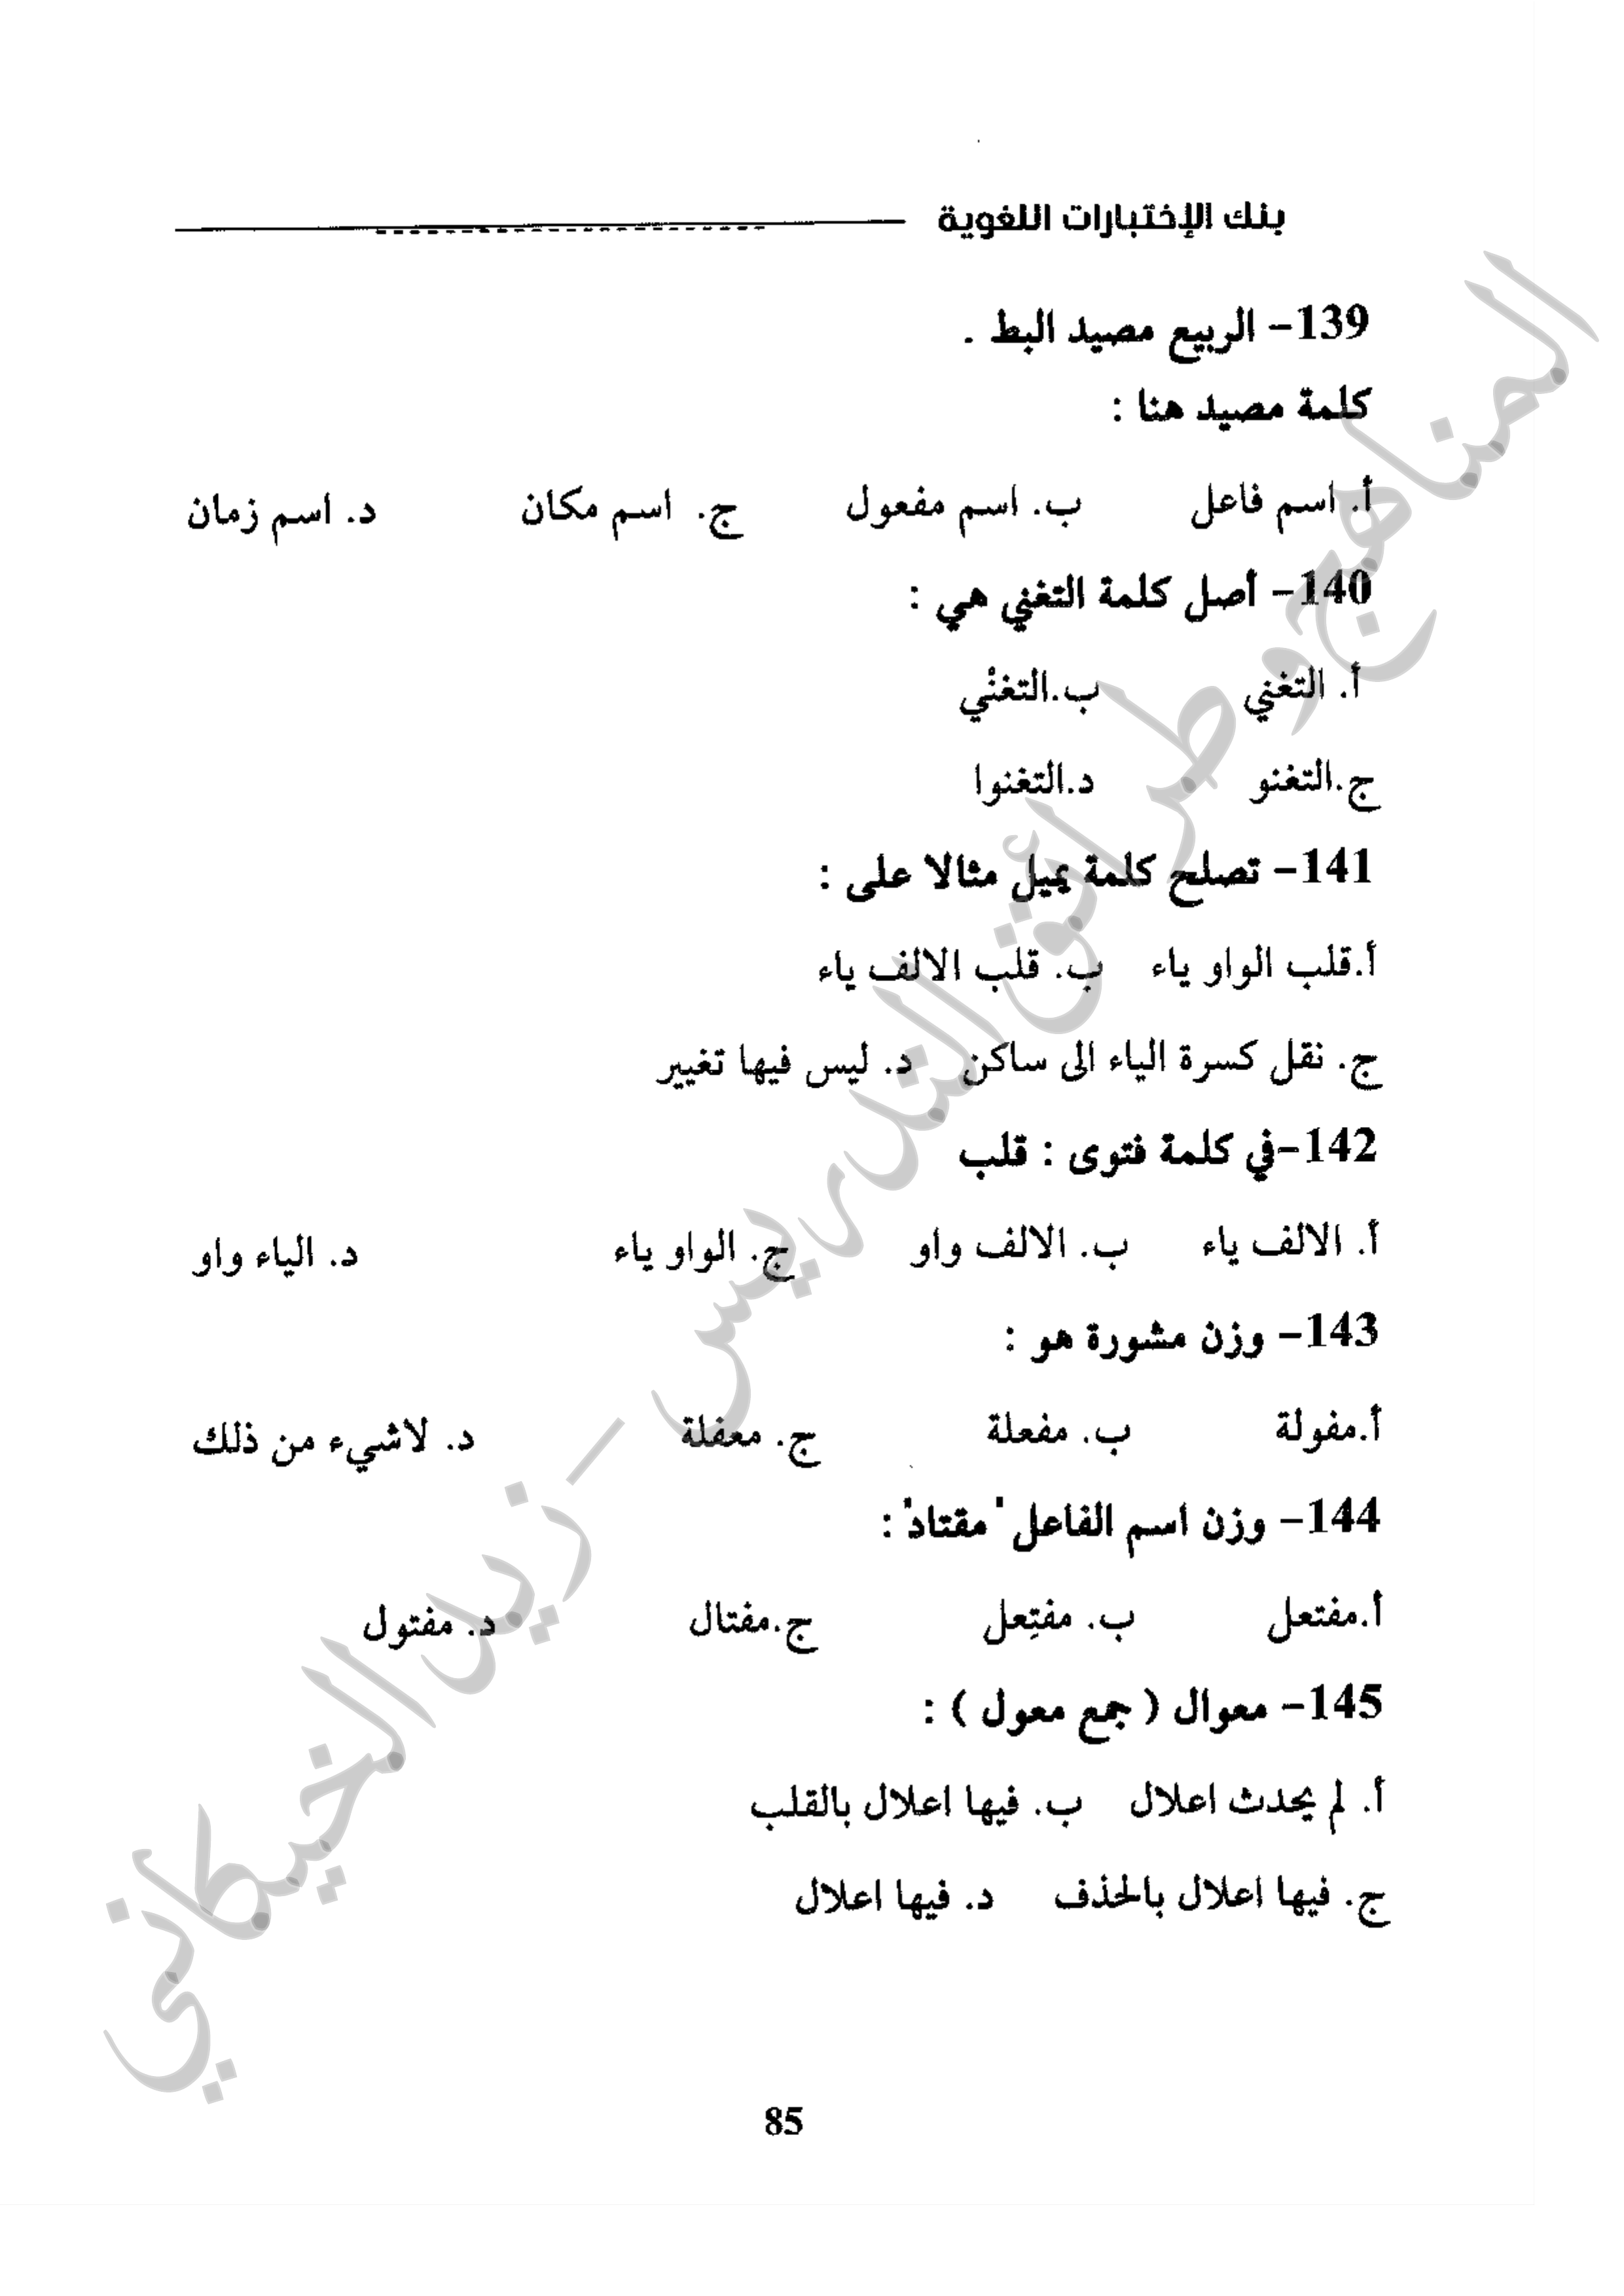 بنك الإختبارات اللغوية
139- الربيع مصيد البط .
كلمة مصيد هنا :
أ. اسم فاعل ب. اسم مفعول ج. اسم مكان د. اسم زمان
140- أصل كلمة التغني هي :
أ. التغني ب.التغنُي
ج.التغنو د.التغنوا
141- تصلح كلمة يميل مثالا على :
أ.قلب الواو ياء ب. قلب الالف ياء
ج. نقل كسرة الياء الى ساكن د. ليس فيها تغيير
142-في كلمة فتوى : قلب
أ. الالف ياء ب. الالف واو ج. الواو ياء د. الياء واو
143- وزن مشورة هو :
أ.مفولة ب. مفعلة ج. معفلة د. لاشيء من ذلك
144- وزن اسم الفاعل "مقتاد" :
أ.مفتعل ب. مفتِعل ج.مفتال د. مفتول
145- معوال ( جمع معول ) :
أ. لم يحدث اعلال ب. فيها اعلال بالقلب
ج. فيها اعلال بالحذف د. فيها اعلال
85
المناهج وطرائق التدريس - زيد الخيكاني